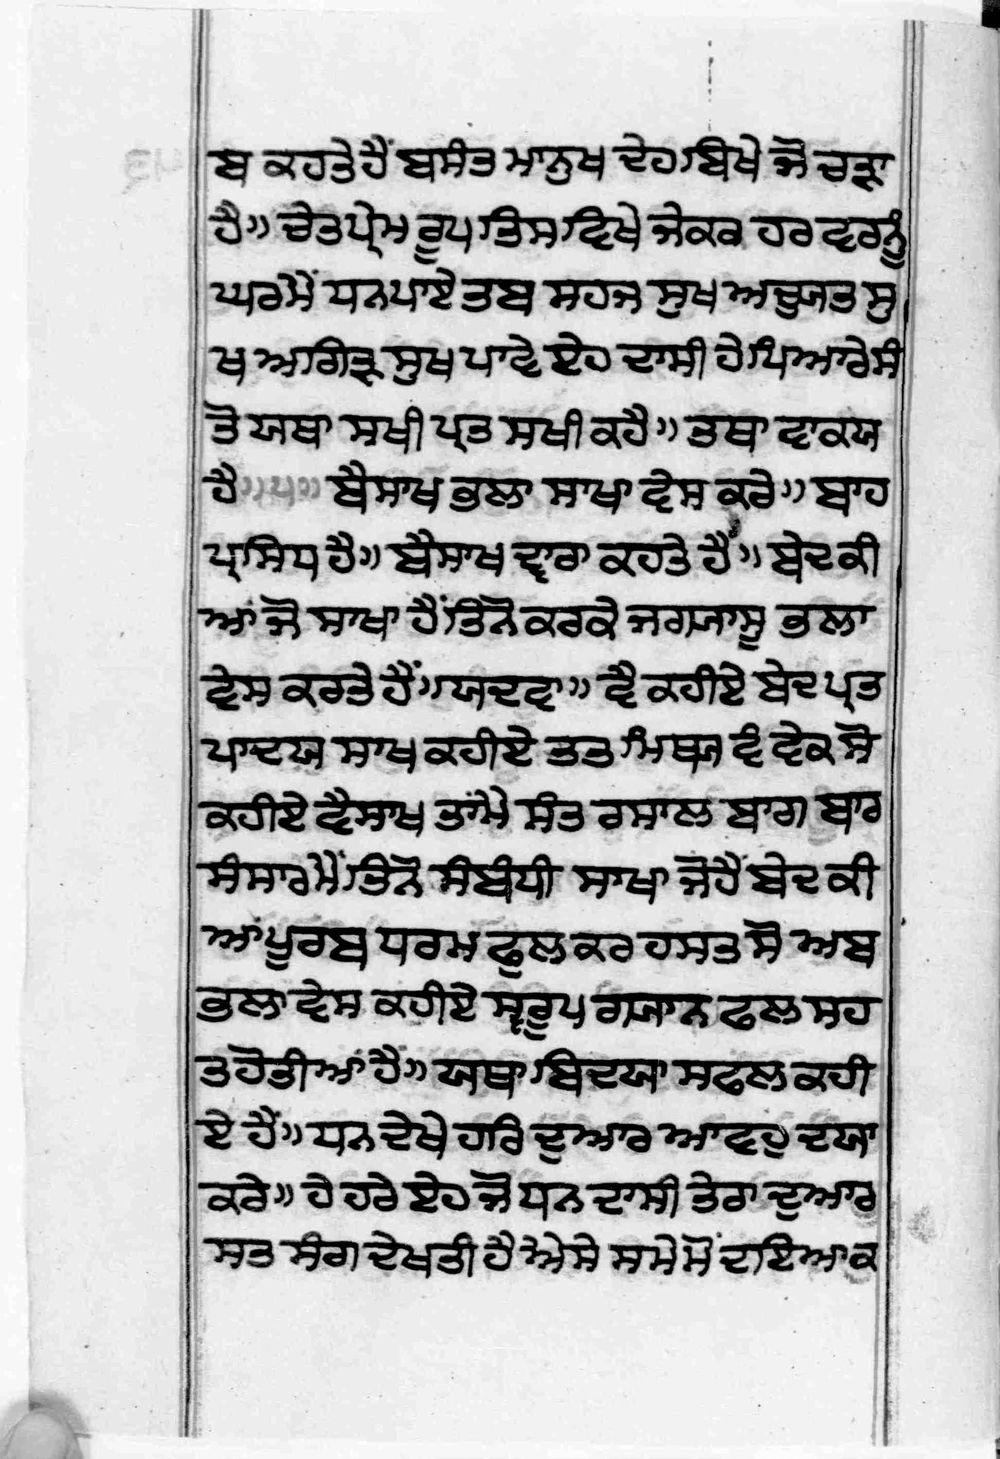 ਬ ਕਹਤੇ ਹੈਂ ਬਸੰਤ ਮਾਨੁਖ ਦੇਹ ਬਿਖੇ ਜੋ ਚੜ੍ਹਾ
ਹੈ॥ ਚੇਤ ਪ੍ਰੇਮ ਰੂਪ ਤਿਸ ਵਿਖੇ ਜੇਕਰ ਹਰ ਵਰਨੂੰ
ਘਰ ਮੈਂ ਧਨ ਪਾਏ ਤਬ ਸਹਜ ਸੁਖ ਅਚੁਯਤ ਸੁ
ਖ ਆਗਿੜ ਸੁਖ ਪਾਵੇ ਏਹ ਦਾਸੀ ਹੇ ਪਿਆਰੇ ਸੰ
ਤੋ ਯਥਾ ਸਖੀ ਪ੍ਰਤ ਸਖੀ ਕਹੈ॥ ਤਥਾ ਵਾਕਯ
ਹੈ॥੫॥ ਬੈਸਾਖ ਭਲਾ ਸਾਖਾ ਵੇਸ ਕਰੇ॥ ਬਾਹ
ਪ੍ਰਸਿਧ ਹੈ॥ ਬੈਸਾਖ ਦ੍ਵਾਰਾ ਕਹਤੇ ਹੈਂ॥ ਬੇਦ ਕੀ
ਆਂ ਜੋ ਸਾਖਾ ਹੈਂ ਤਿਨੋ ਕਰਕੇ ਜਗਯਾਸੂ ਭਲਾ
ਵੇਸ ਕਰਤੇ ਹੈਂ॥ ਯਦਵਾ॥ ਵੈ ਕਹੀਏ ਬੇਦ ਪ੍ਰਤ
ਪਾਦਯ ਸਾਖ ਕਹੀਏ ਤਤ ਮਿਥਯ ਵੰ ਵੇਕ ਸੋ
ਕਹੀਏ ਵੈਸਾਖ ਤਾਂਮੈ ਸੰਤ ਰਸਾਲ ਬਾਗ ਬਾਰ
ਸੰਸਾਰ ਮੈਂ ਤਿਨੋ ਸੰਬੰਧੀ ਸਾਖਾ ਜੋ ਹੈਂ ਬੇਦ ਕੀ
ਆਂ ਪੂਰਬ ਧਰਮ ਫੂਲ ਕਰ ਹਸਤ ਸੋ ਅਬ
ਭਲਾ ਵੇਸ ਕਹੀਏ ਸ੍ਵਰੂਪ ਗਯਾਨ ਫਲ ਸਹ
ਤ ਹੋਤੀਆਂ ਹੈਂ॥ ਯਥਾ ਬਿਦਯਾ ਸਫਲ ਕਹੀ
ਏ ਹੈਂ॥ ਧਨ ਦੇਖੇ ਹਰਿ ਦੁਆਰ ਆਵਹੁ ਦਯਾ
ਕਰੇ॥ ਹੇ ਹਰੇ ਏਹ ਜੋ ਧਨ ਦਾਸੀ ਤੇਰਾ ਦੁਆਰ
ਸਤ ਸੰਗ ਦੇਖਤੀ ਹੈ ਐਸੇ ਸਮੇ ਮੋਂ ਦਇਆ ਕ